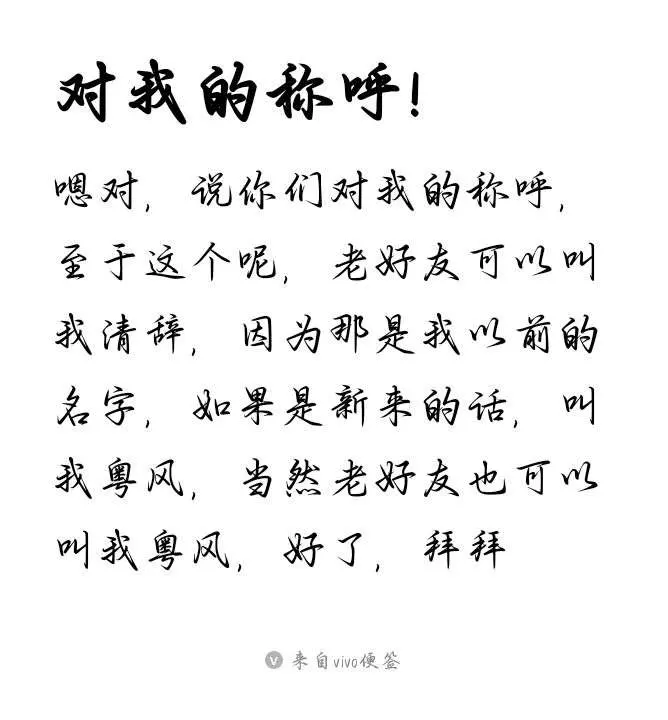 对我的称呼!
嗯对，说你们对我的称呼，
至于这个呢，老好友可以叫
我清辞，因为那是我以前的
名字，如果是新来的话，叫
我粤风，当然老好友也可以
叫我粤风，好了，拜拜
V 来自vivo便签